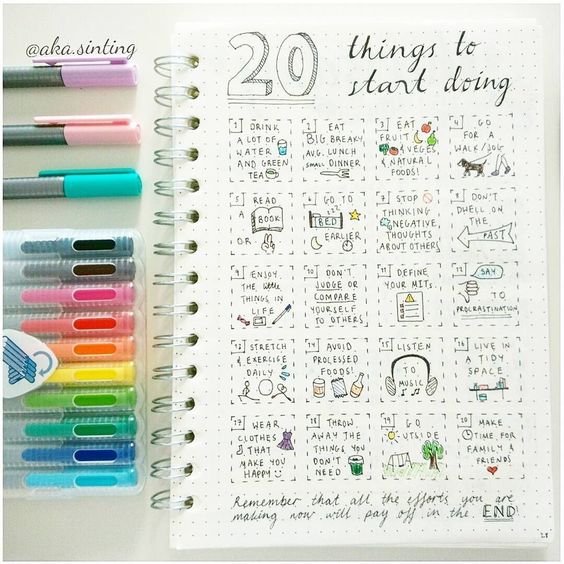 @aka.sinting
20 things to
start doing
1 DRINK
A LOT OF
WATER
AND GREEN
TEA
2 EAT
BIG BREAKY
AVG. LUNCH
SMALL DINNER
3 EAT
FRUIT
& VEGES
& NATURAL
FOODS!
4 GO
FOR A
WALK/JOG
5 READ
A BOOK
OR
6 GO TO
BED
EARLIER
7 STOP
THINKING
NEGATIVE
THOUGHTS
ABOUT OTHERS
8 DON'T
DWELL ON
THE
PAST
9 ENJOY
THE little
THINGS IN
LIFE
10 DON'T
JUDGE OR
COMPARE
YOURSELF
TO OTHERS
11 DEFINE
YOUR MITS
12 SAY
TO
PROCRASTINATION
13 STRETCH
& EXERCISE
DAILY
14 AVOID
PROCESSED
FOODS!
15 LISTEN
TO
MUSIC
16 LIVE IN
A TIDY
SPACE
17 WEAR
CLOTHES
THAT
MAKE YOU
HAPPY
18 THROW
AWAY THE
THINGS YOU
DON'T
NEED
19 GO
OUTSIDE
20 MAKE
TIME FOR
FAMILY &
FRIENDS
Remember that all the efforts you are
making now will pay off in the END!